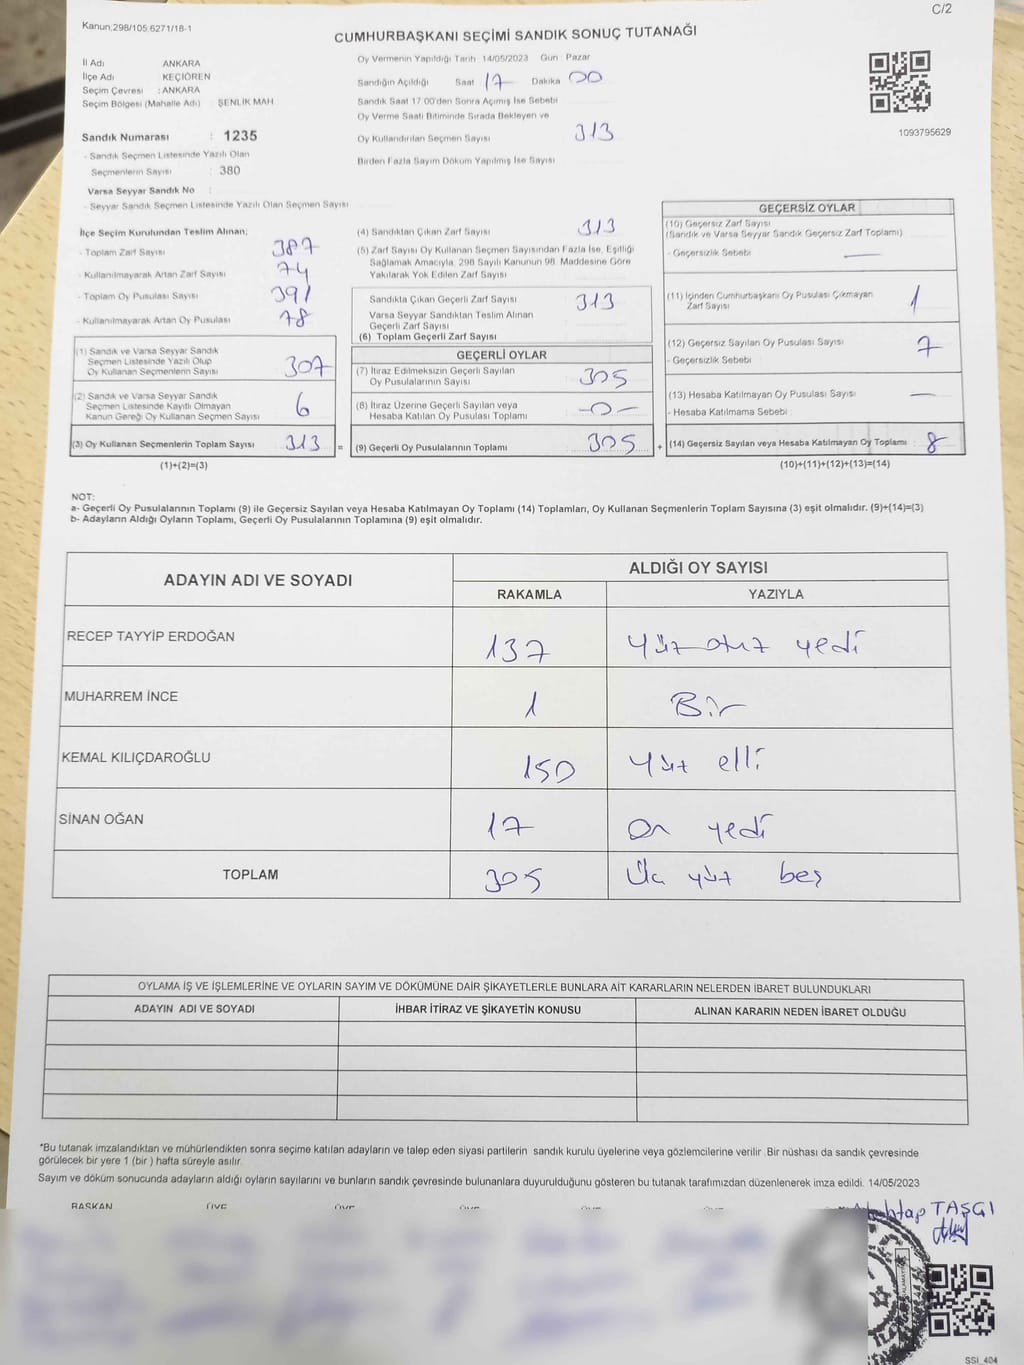 C/2
Kanun;298/105 6271/18-1
CUMHURBAŞKANI SEÇİMİ SANDIK SONUÇ TUTANAĞI
İl Adı ANKARA
İlçe Adı KEÇİÖREN
Seçim Çevresi : ANKARA
Seçim Bölgesi (Mahalle Adı) : ŞENLİK MAH.
Sandık Numarası : 1235
- Sandık Seçmen Listesinde Yazılı Olan
Seçmenlerin Sayısı : 380
Varsa Seyyar Sandık No :
- Seyyar Sandık Seçmen Listesinde Yazılı Olan Seçmen Sayısı
Oy Vermenin Yapıldığı Tarih 14/05/2023 Gün Pazar
Sandığın Açıldığı Saat 17 Dakika 00
Sandık Saat 17:00'den Sonra Açımış İse Sebebi
Oy Verme Saati Bitiminde Sırada Bekleyen ve
Oy Kullandırılan Seçmen Sayısı 313
Birden Fazla Sayım Döküm Yapılmış İse Sayısı
1093795629
İlçe Seçim Kurulundan Teslim Alınan;
- Toplam Zarf Sayısı 387
- Kullanılmayarak Artan Zarf Sayısı 74
- Toplam Oy Pusulası Sayısı 391
- Kullanılmayarak Artan Oy Pusulası 78
(1) Sandık ve Varsa Seyyar Sandık
Seçmen Listesinde Yazılı Olup
Oy Kullanan Seçmenlerin Sayısı 307
(2) Sandık ve Varsa Seyyar Sandık
Seçmen Listesinde Kayıtlı Olmayan
Kanun Gereği Oy Kullanan Seçmen Sayısı 6
(3) Oy Kullanan Seçmenlerin Toplam Sayısı 313 =
(1)+(2)=(3)
(4) Sandıktan Çıkan Zarf Sayısı 313
(5) Zarf Sayısı Oy Kullanan Seçmen Sayısından Fazla İse, Eşitliği
Sağlamak Amacıyla, 298 Sayılı Kanunun 98. Maddesine Göre
Yakılarak Yok Edilen Zarf Sayısı
Sandıkta Çıkan Geçerli Zarf Sayısı 313
Varsa Seyyar Sandıktan Teslim Alınan
Geçerli Zarf Sayısı
(6) Toplam Geçerli Zarf Sayısı
GEÇERLİ OYLAR
(7) İtiraz Edilmeksizin Geçerli Sayılan
Oy Pusulalarının Sayısı 305
(8) İtiraz Üzerine Geçerli Sayılan veya
Hesaba Katılan Oy Pusulası Toplamı -0-
(9) Geçerli Oy Pusulalarının Toplamı 305 +
GEÇERSİZ OYLAR
(10) Geçersiz Zarf Sayısı
(Sandık ve Varsa Seyyar Sandık Geçersiz Zarf Toplamı)
- Geçersizlik Sebebi —
(11) İçinden Cumhurbaşkanı Oy Pusulası Çıkmayan
Zarf Sayısı 1
(12) Geçersiz Sayılan Oy Pusulası Sayısı 7
- Geçersizlik Sebebi
(13) Hesaba Katılmayan Oy Pusulası Sayısı —
- Hesaba Katılmama Sebebi
(14) Geçersiz Sayılan veya Hesaba Katılmayan Oy Toplamı : 8
(10)+(11)+(12)+(13)=(14)
NOT:
a- Geçerli Oy Pusulalarının Toplamı (9) ile Geçersiz Sayılan veya Hesaba Katılmayan Oy Toplamı (14) Toplamları, Oy Kullanan Seçmenlerin Toplam Sayısına (3) eşit olmalıdır. (9)+(14)=(3)
b- Adayların Aldığı Oyların Toplamı, Geçerli Oy Pusulalarının Toplamına (9) eşit olmalıdır.
ADAYIN ADI VE SOYADI ALDIĞI OY SAYISI
RAKAMLA YAZIYLA
RECEP TAYYİP ERDOĞAN 137 yüz otuz yedi
MUHARREM İNCE 1 Bir
KEMAL KILIÇDAROĞLU 150 Yüz elli
SİNAN OĞAN 17 On yedi
TOPLAM 305 Üç yüz beş
OYLAMA İŞ VE İŞLEMLERİNE VE OYLARIN SAYIM VE DÖKÜMÜNE DAİR ŞİKAYETLERLE BUNLARA AİT KARARLARIN NELERDEN İBARET BULUNDUKLARI
ADAYIN ADI VE SOYADI İHBAR İTİRAZ VE ŞİKAYETİN KONUSU ALINAN KARARIN NEDEN İBARET OLDUĞU
*Bu tutanak imzalandıktan ve mühürlendikten sonra seçime katılan adayların ve talep eden siyasi partilerin sandık kurulu üyelerine veya gözlemcilerine verilir. Bir nüshası da sandık çevresinde
görülecek bir yere 1 (bir ) hafta süreyle asılır.
Sayım ve döküm sonucunda adayların aldığı oyların sayılarını ve bunların sandık çevresinde bulunanlara duyurulduğunu gösteren bu tutanak tarafımızdan düzenlenerek imza edildi. 14/05/2023
BAŞKAN ÜYE ÜYE ÜYE ÜYE ÜYE
TAŞGI
SSI_404